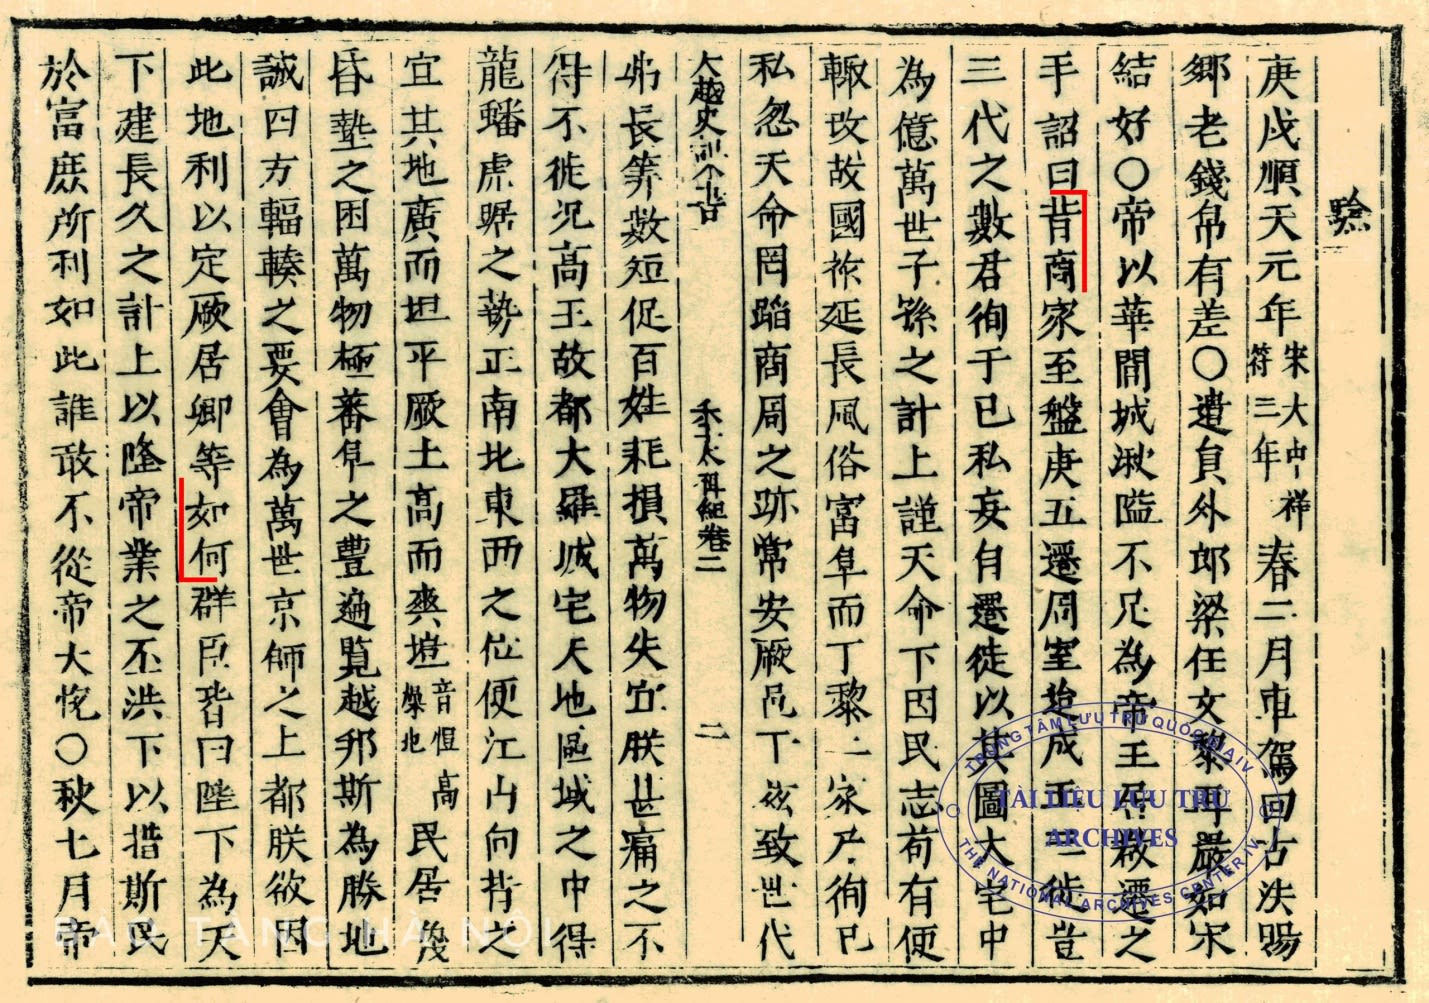 驗
庚戌順天元年宋大中祥符三年春二月車駕回古法賜
鄉老錢帛有差○遣員外郎梁任文黎再嚴如宋
結好○帝以華閭城湫隘不足為帝王居欲遷之
手詔曰昔商家至盤庚五遷周室迨成王三徙豈
三代之數君徇于己私妄自遷徙以其圖大宅中
為億萬世子孫之計上謹天命下因民志苟有便
輙改故國祚延長風俗富阜而丁黎二家乃徇己
私忽天命罔蹈商周之跡常安厥邑于兹致世代
大越史記 卷二 二
弗長筭數短促百姓耗損萬物失宜朕甚痛之不
得不徙況高王故都大羅城宅天地區域之中得
龍蟠虎踞之勢正南北東西之位便江山向背之
宜其地廣而坦平厥土高而爽塏音愷高燥地民居蔑
昏墊之困萬物極蕃阜之豐遍覽越邦斯為勝地
誠四方輻輳之要會為萬世京師之上都朕欲因
此地利以定厥居卿等如何群臣皆曰陛下為天
下建長久之計上以隆帝業之丕洪下以措斯民
於富庶所利如此誰敢不從帝大悅○秋七月帝
TRUNG TÂM LƯU TRỮ QUỐC GIA IV
TÀI LIỆU LƯU TRỮ
ARCHIVES
THE NATIONAL ARCHIVES CENTER IV
BẢO TÀNG HÀ NỘI